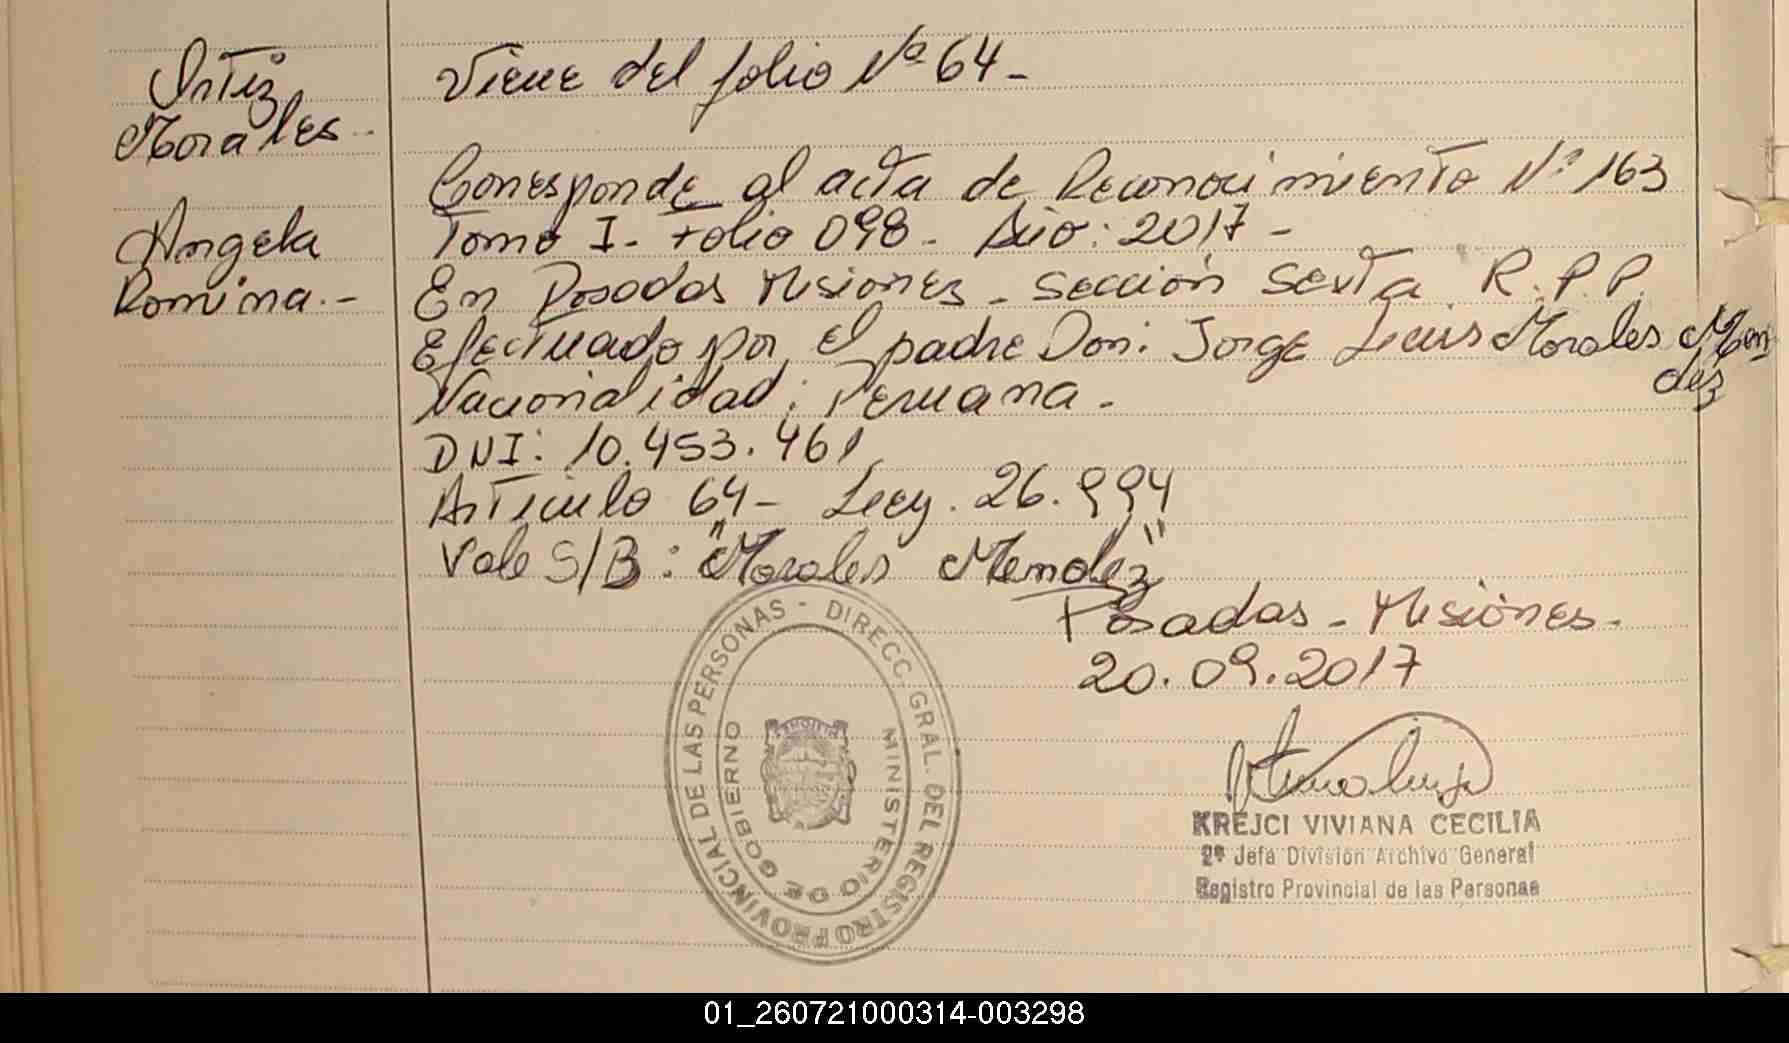 Ortiz
Morales -
Angela
Romina. -
Viene del folio Nº 64 -
Corresponde al acta de Reconocimiento Nº 163
Tomo I - Folio 098 - Año: 2017 -
En Posadas Misiones - Sección Sexta. R.P.P.
Efectuado por el padre Don: Jorge Luis Morales Men
dez
Nacionalidad: Peruana -
DNI: 10.453.461
Artículo 64 - Ley. 26.994
Vale S/B: "Morales Mendez"
Posadas - Misiones -
20.09.2017
DIRECC. GRAL. DEL REGISTRO PROVINCIAL DE LAS PERSONAS -
MINISTERIO DE GOBIERNO
KREJCI VIVIANA CECILIA
2ª Jefa División Archivo General
Registro Provincial de las Personas
01_260721000314-003298